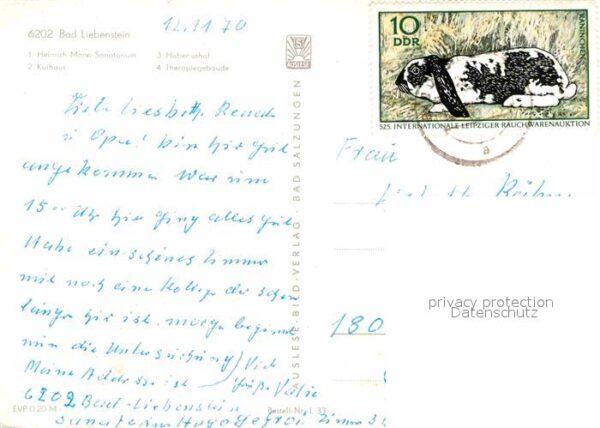 12.11.70
6202 Bad Liebenstein
1 Heinrich-Mann-Sanatorium
2 Kurhaus
3 Hubertushof
4 Therapiegebäude
Liebe Liesbeth, Renate
u Opa! bin hier gut
angekommen war um
15 00 Uhr hier ging alles gut
Habe ein schönes Zimmer
mit noch eine Kollege der schon
länger hir ist. morgen beginnt
nun die Untersuchung / Viel
Meine Addresse ist Grüße
6202 Bad-Liebenstein
Sanatorium Hugo Zimmer
EVP 0,20 M
Bestell-Nr. L 33
AUSLESE-BILD-VERLAG · BAD SALZUNGEN
10
DDR
KANINCHEN
525. INTERNATIONALE LEIPZIGER RAUCHWARENAUKTION
a
Frau
180
privacy protection
Datenschutz